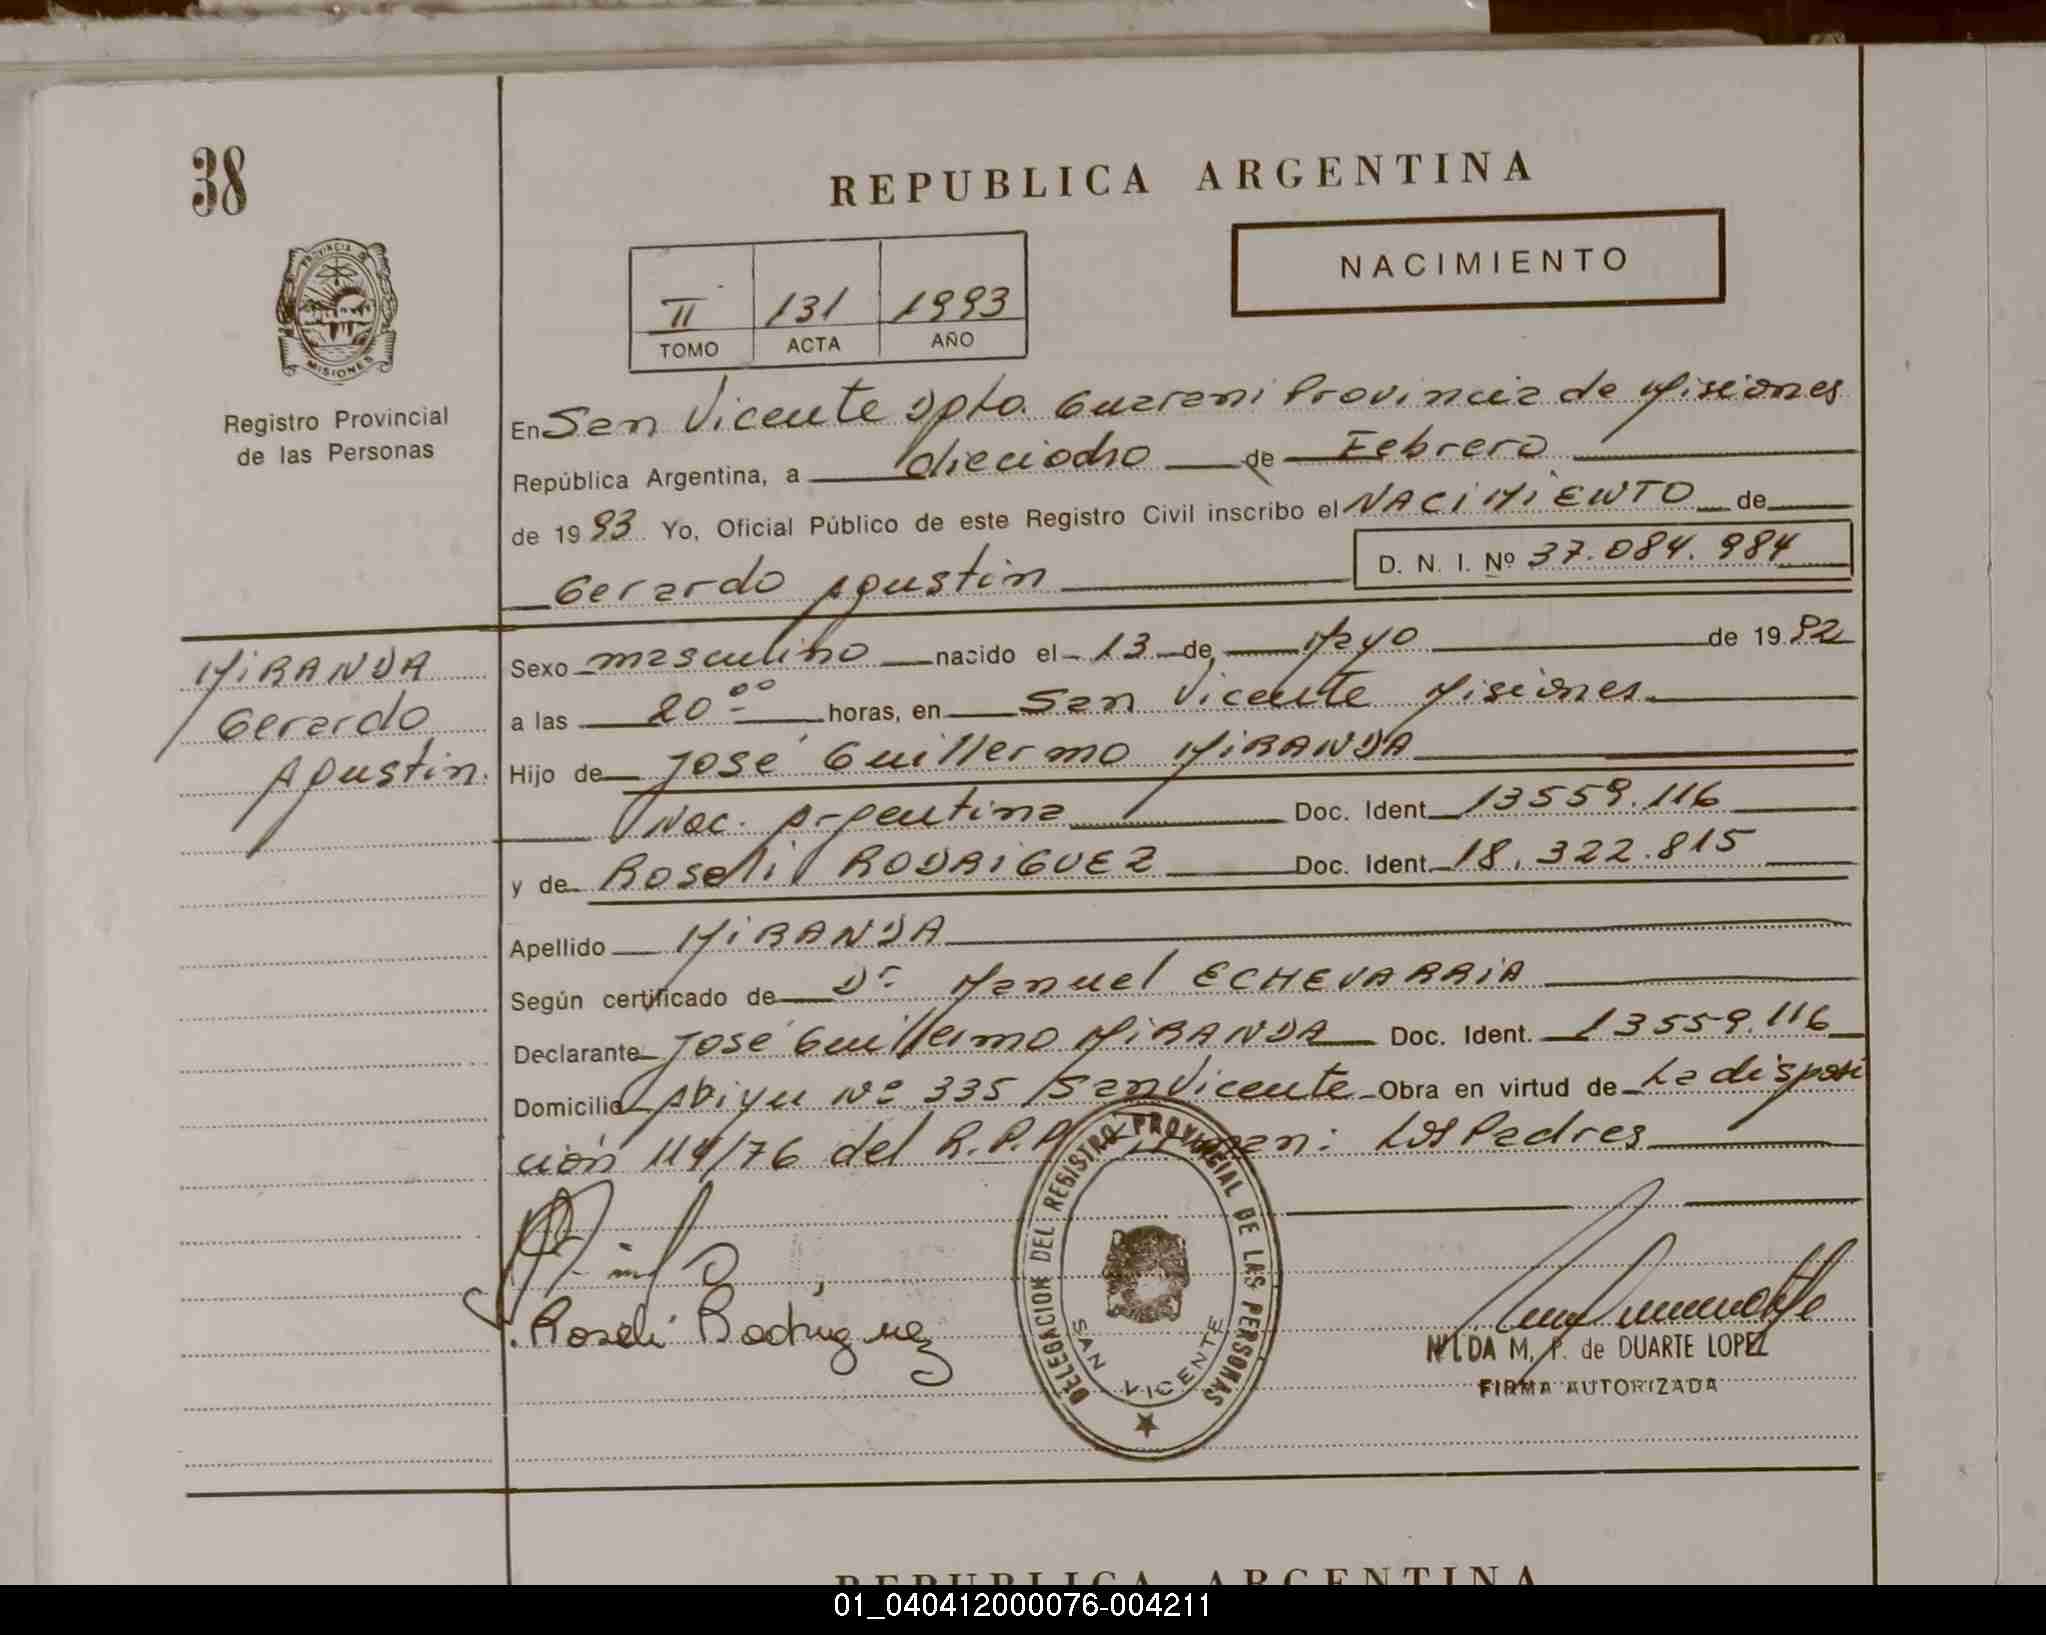 38
REPUBLICA ARGENTINA
NACIMIENTO
II 131 1993
TOMO ACTA AÑO
PROVINCIA DE MISIONES
Registro Provincial
de las Personas
En San Vicente Dpto. Guarani Provincia de Misiones
República Argentina, a dieciocho de Febrero
de 1993 Yo, Oficial Público de este Registro Civil inscribo el NACIMIENTO de
Gerardo Agustin D. N. I. Nº 37.084.984
MIRANDA
Gerardo
Agustin.
Sexo masculino nacido el 13 de Mayo de 1992
a las 20⁰⁰ horas, en San Vicente Misiones
Hijo de José Guillermo MIRANDA
Nac. Argentina Doc. Ident. 13559.116
y de Roseli RODRIGUEZ Doc. Ident. 18.322.815
Apellido MIRANDA
Según certificado de Dr Manuel ECHEVARRIA
Declarante José Guillermo MIRANDA Doc. Ident. 13559.116
Domicilio Nº 335 San Vicente Obra en virtud de La disposi
ción 114/76 del R.P.P. Firman: Los Padres
Roseli Rodriguez
DELEGACION DEL REGISTRO PROVINCIAL DE LAS PERSONAS
SAN VICENTE
NILDA M. P. de DUARTE LOPEZ
FIRMA AUTORIZADA
REPUBLICA ARGENTINA
01_040412000076-004211